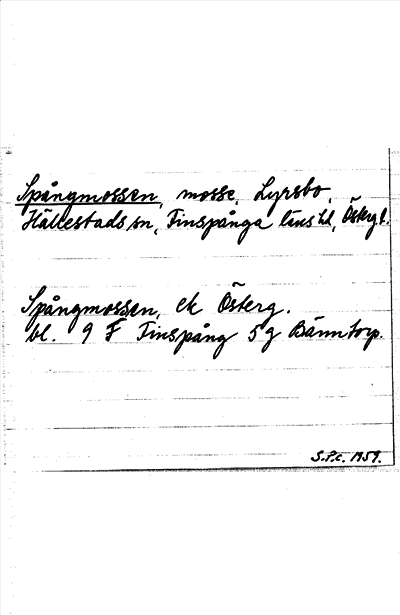 Spångmossen, mosse, Lyrsbo,
Hällestads sn, Finspånga läns hd, Östergl.
Spångmossen, ek Österg.
bl. 9 F Finspång 5 g Bänntorp.
S.P.c. 1959.